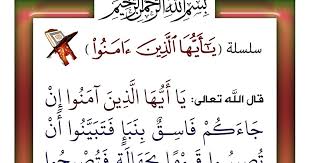 بسم الله الرحمن الرحيم
سلسلة (يَٰٓأَيُّهَا ٱلَّذِينَ ءَامَنُوا۟)
قال الله تعالى: يَا أَيُّهَا الَّذِينَ آمَنُوا إِنْ
جَاءَكُمْ فَاسِقٌ بِنَبَإٍ فَتَبَيَّنُوا أَنْ
تُصِيبُوا قَوْمًا بِجَهَالَةٍ فَتُصْبِحُوا